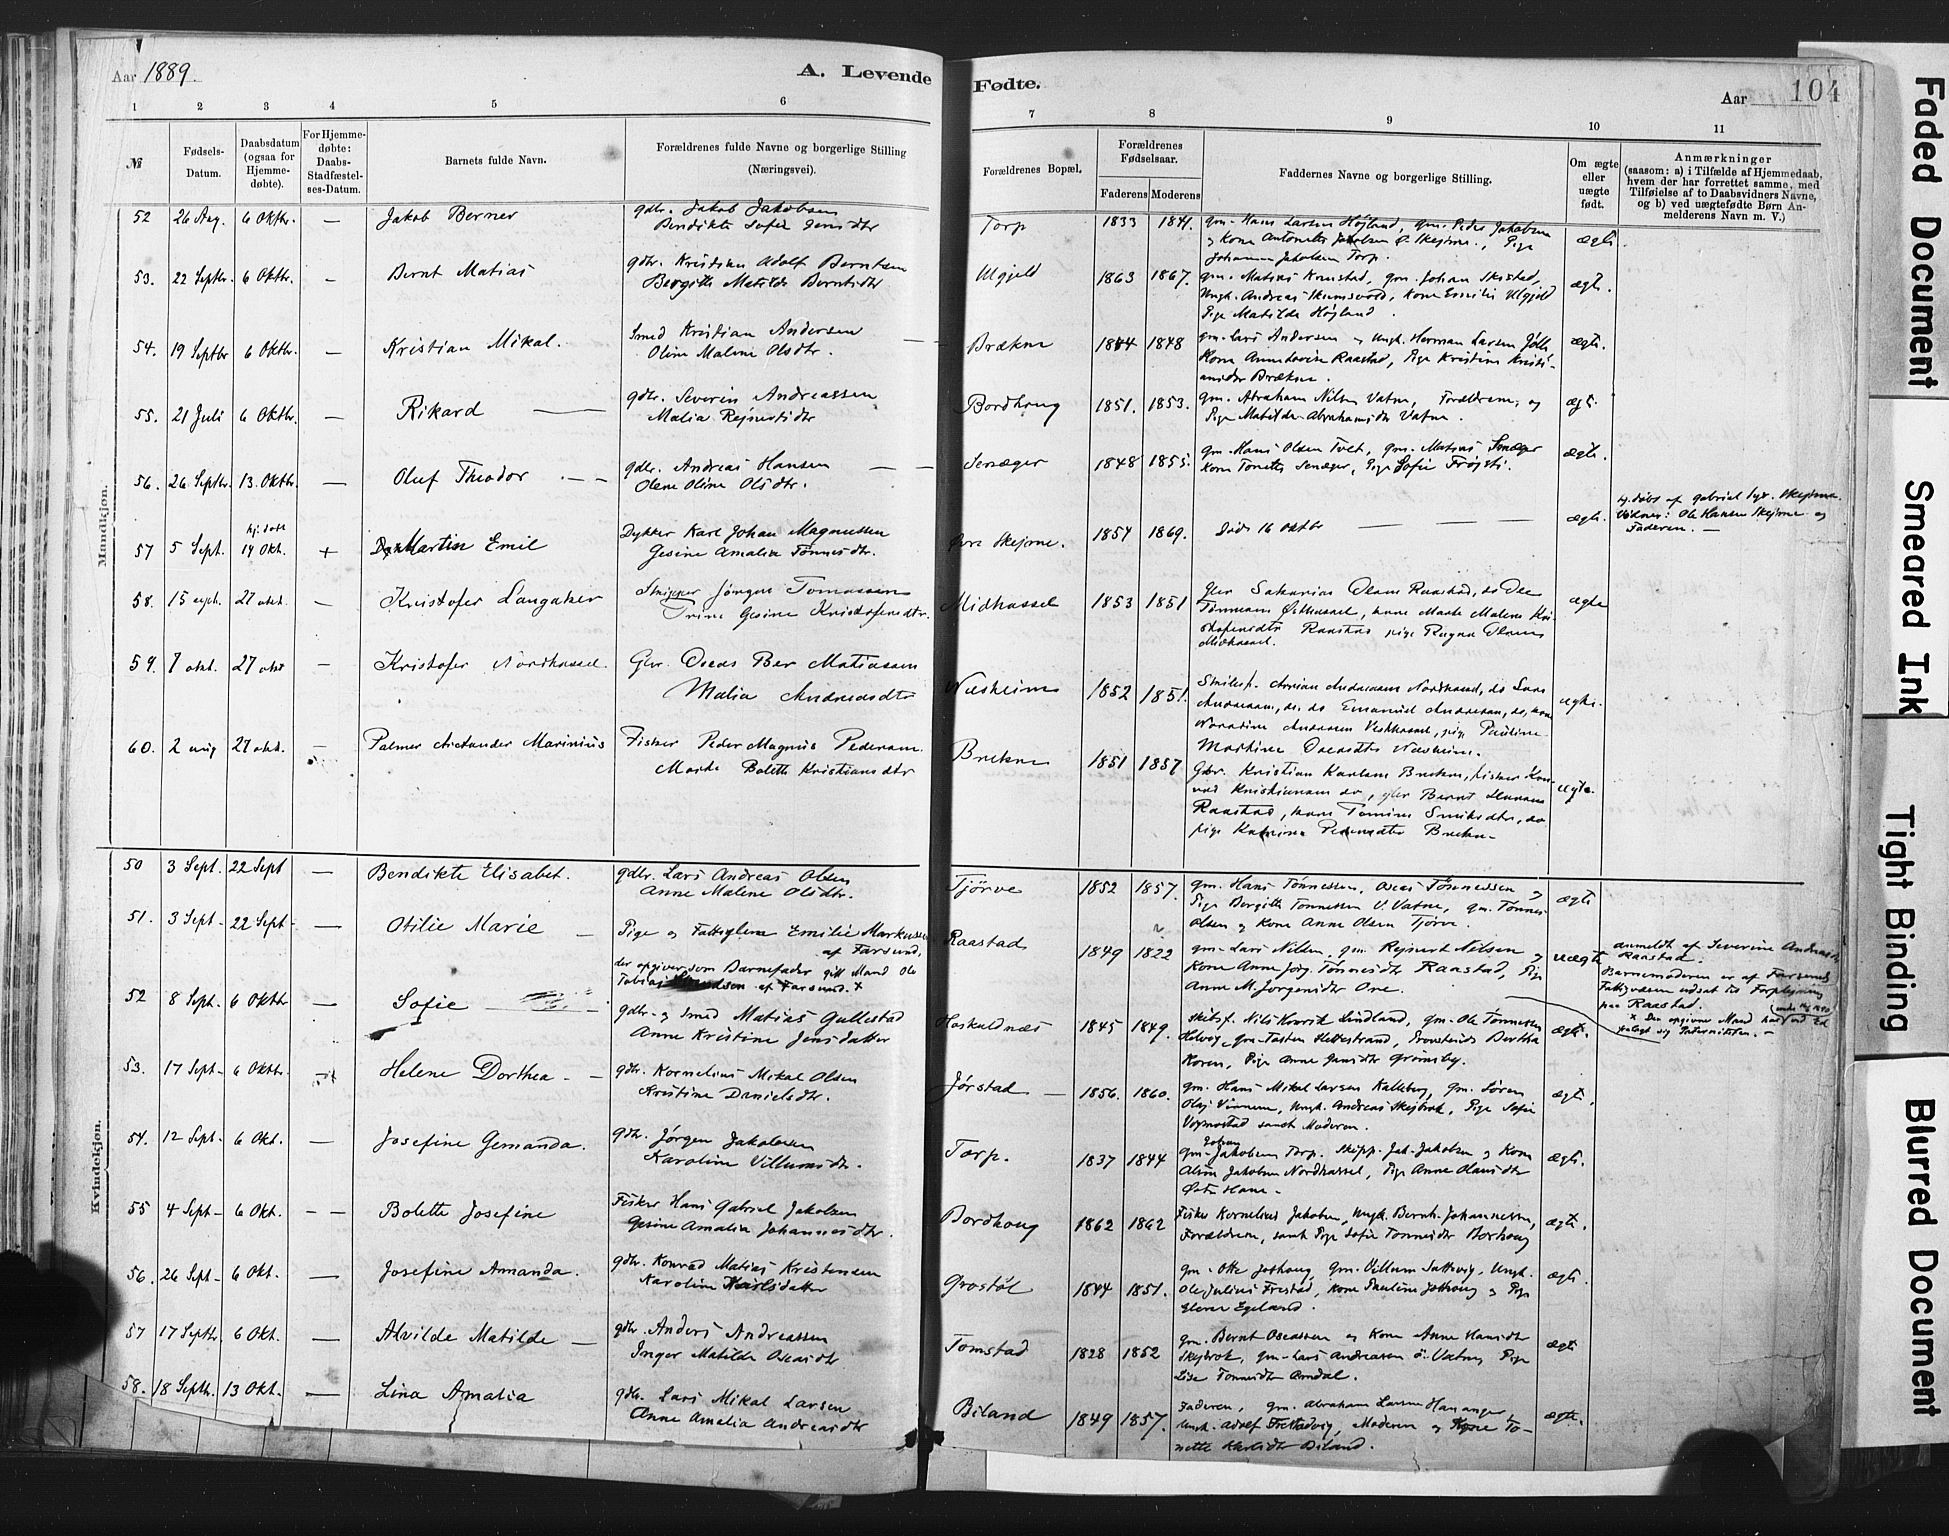 Aar 1889.
A. Levende
Fødte.
Aar
104
1 2 3 4 5 6
7 8 9 10 11
№
Fødsels-
Datum.
Daabsdatum
(ogsaa for
Hjemme-
døbte).
For Hjemme-
døbte:
Daabs-
Stadfæstel-
ses-Datum.
Barnets fulde Navn.
Forældrenes fulde Navne og borgerlige Stilling
(Næringsvei).
Forældrenes Bopæl.
Forældrenes
Fødselsaar.
Faderens Moderens
Faddernes Navne og borgerlige Stilling.
Om ægte
eller
uægte
født.
Anmærkninger
(saasom: a) i Tilfælde af Hjemmedaab,
hvem der har forrettet samme, med
Tilføielse af to Daabsvidners Navne,
og b) ved uægtefødte Børn An-
melderens Navn m. V.)
Mandkjøn.
52 26 Aug. 6 Oktbr. — Jakob Berner
gdbr. Jakob Jakobsen
Bendikte Sofie
Torp 1833 1841.
gm. Hans Larsen Højland, gm. Peder Jakobsen
Johanne Jakobsen Torp.
ægte.
53. 22 Septbr. 6 Oktbr. — Bernt Matias
gdbr. Kristian Adolf Berntsen
Bergitte Matilde Berntsdtr
Ulgjeld 1863 1867.
Ungk. Andreas Skumsvold, Kone Emilie Ulgjeld
Pige Matilde Højland.
ægte.
54. 19 Septbr 6 Oktbr. — Kristian Mikal.
Smed Kristian Andersen
Oline Malene Olsdtr.
Brækne 1844 1848
gm. Lars Andersen og Ungk. Herman Larsen
Raastad, Pige Kristine Kristi-
Brækne.
ægte.
55. 21 Juli 6 Oktbr. — Rikard —
gdbr. Severin Andreassen
Malia Rejnertsdtr
Bordhoug 1851. 1853.
gm. Abraham Nilsen Vatne, Forældrene, og
Pige Matilde Abrahamsdtr Vatne.
ægte.
56. 26 Septbr. 13. Oktbr. — Oluf Theodor
gdbr. Andreas Hansen
Olene Oline Olsdtr.
Senæger 1848 1855.
gm. Hans Olsen Tvet, gm. Matias Senæger
Kone Tonette Senæger, Pige Sofie
ægte.
57 5 Sept. hj. døbt
14 Okt. + Martin Emil
Dykker Karl Johan Magnussen
Gesine Amalia Tønnesdtr.
Øvre Skejbrne. 1854 1869.
Døde 16 Oktbr — — —
ægte.
hj. døbt af Gabriel
Vidner: Ole Hansen og
Faderen. —
58. 15 sept. 27 okt. — Kristofer Langaker
Skipper Jørgen Tomassen
Trine Gesine Kristofersdtr.
Midhassel 1853 1851
Gbr Sakarias Olsen Raastad, do Ole
Raastad pige
Midhassel.
ægte
59. 7 okt. 27 okt — Kristofer Nordhassel.
Gbr. Oseas Ber Matiassen
Malia Andreasdtr
Næsheim 1852 1851.
Andreassen Nordhassel, do Lars
Andreassen, do, do Emanuel Andreassen, do, kone
Andreassen Vesthassel, pige Pauline
Martine Oseasdtr Næsheim.
ægte.
60. 2 aug 27 okt. — Palmer Marinius
Fisker Peder Magnus Pedersen.
Marte Bolette Kristiansdtr
Brekne 1851 1857
Gbr. Kristian Karlsen Brekne, fisker Kon-
rad Kristiansen do, gbr Bernt Hansen
Raastad, kone
pige Katrine Pedersdtr Brekn-
ægte.
Kvindekjøn.
50 3 Sept. 22 Sept — Bendikte Elisabet.
gdbr. Lars Andreas Olsen
Anne Malene Olsdtr.
Tjørve 1852 1857.
gm. Hans Tønnessen, Oseas Tønnessen og
Pige Bergitte Tønnessen V. Vatne, gm. Tønnes
Olsen og Kone Anne Olsen Tjørve.
ægte
51. 3 Sept. 22 Sept — Otilie Marie —
Pige og Fattiglem Emilie Markussen
af Farsund,
der opgiver som Barnefader gift Mand Ole
Tobias af Farsund. x
Raastad 1849 1822
gm. Lars Nilsen, gm. Rejnert Nilsen og
Kone Anne Jørg. Tønnesdtr Raastad, Pige
Anne M. Jørgensdtr Ore.
uægte
anmeldt af Severine
Raastad.
Barnemoderen er af Farsunds
Fattigvæsen udsat til Forplejning
paa Raastad.
x Den opgivne Mand har ved Ed
Paterniteten. —
52 8 Sept. 6 Oktbr — Sofie —
gdbr. og Smed Matias Gullestad
Anne Kristine Jensdatter
Hoskuldnæs 1845 1849.
Skibsf. Nils Henrik Lindland, gm. Ole Tønnessen
Helvig, gm. Tosten Hettestrand, Bertha
Koren, Pige Anne
ægte.
53. 17 Sept. 6 Oktbr. Helene Dorthea —
gdbr. Kornelius Mikal Olsen
Kristine Danielsdtr.
Jørstad 1856. 1860.
gm. Hans Mikal Larsen Kalleberg, gm. Søren
Ungk. Andreas Skejbrok, Pige Sofie
samt Moderen.
ægte.
54. 12 Sept. 6 Okt. — Josefine Gemanda.
gdbr. Jørgen Jakobsen
Karoline Villumsdtr.
Torp. 1837 1844
Johan
gm. Jakobsen Torp. Skipp. Jak. Jakobsen og Kone
Jakobsen Nordhassel, Pige Anne Olausdtr
ægte.
55 4 Sept. 6 Okt. — — Bolette Josefine
Fisker Hans Gabriel Jakobsen
Gesine Amalia Johannesdtr.
Bordhoug 1862 1862
Fisker Kornelius Jakobsen, Ungk. Bernt Johannessen,
Forældrene, samt Pige Sofie Tønnesdtr Borhoug
ægte.
56. 26 Sept. 6 Okt. — Josefine Amanda.
gdbr. Konrad Matias Kristensen
Karoline Karlsdatter
Grostøl 1844 1851.
gm. Otte Jothoug, gm. Villum Sattevig, Ungk.
Ole Julius Frestad, Kone Pauline Jothoug og Pige
Elene Egeland.
ægte.
57 17 Septbr. 6 Okt. — Alvilde Matilde —
gdbr. Anders Andreassen
Inger Matilde Oseasdtr
Tomstad 1828 1852
gm. Bernt Oseassen og Kone Anne Hansdtr
Skejbrok, gm. Lars Andreassen Ø. Vatne, Pige
Lise Tønnesdtr Omdal.
ægte
58. 18 Septbr. 13 Okt. — Lina Amalia
gdbr. Lars Mikal Larsen
Anne Amalia Andreasdtr
Biland 1849 1857.
Faderen, gm. Abraham Larsen Hananger,
Ungk. Adolf Moderen og Kone To-
nette Karlsdtr Biland.
ægte.
Faded Document
Smeared Ink
Tight Binding
Blurred Document